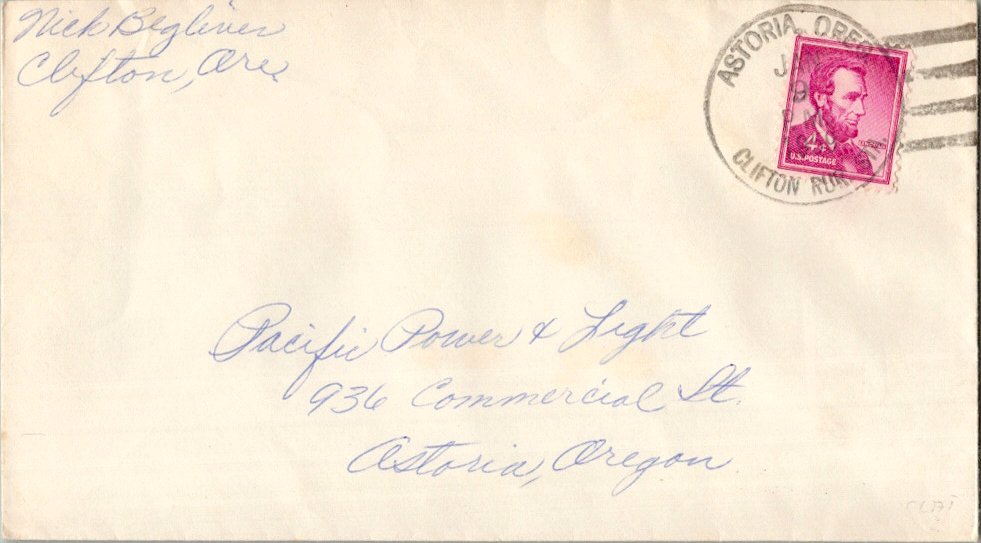 Nick
Clifton, Ore
ASTORIA, OREG
JAN
9
PM
CLIFTON RUR. STA.
4¢
U.S. POSTAGE
Pacific Power & Light
936 Commercial St.
Astoria, Oregon